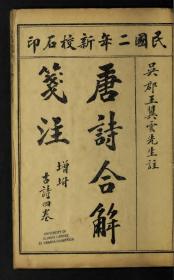 民國二年新授石印
吳郡王翼雲先生註
唐詩合解
箋注
增坿
古詩四卷
UNIVERSITY OF